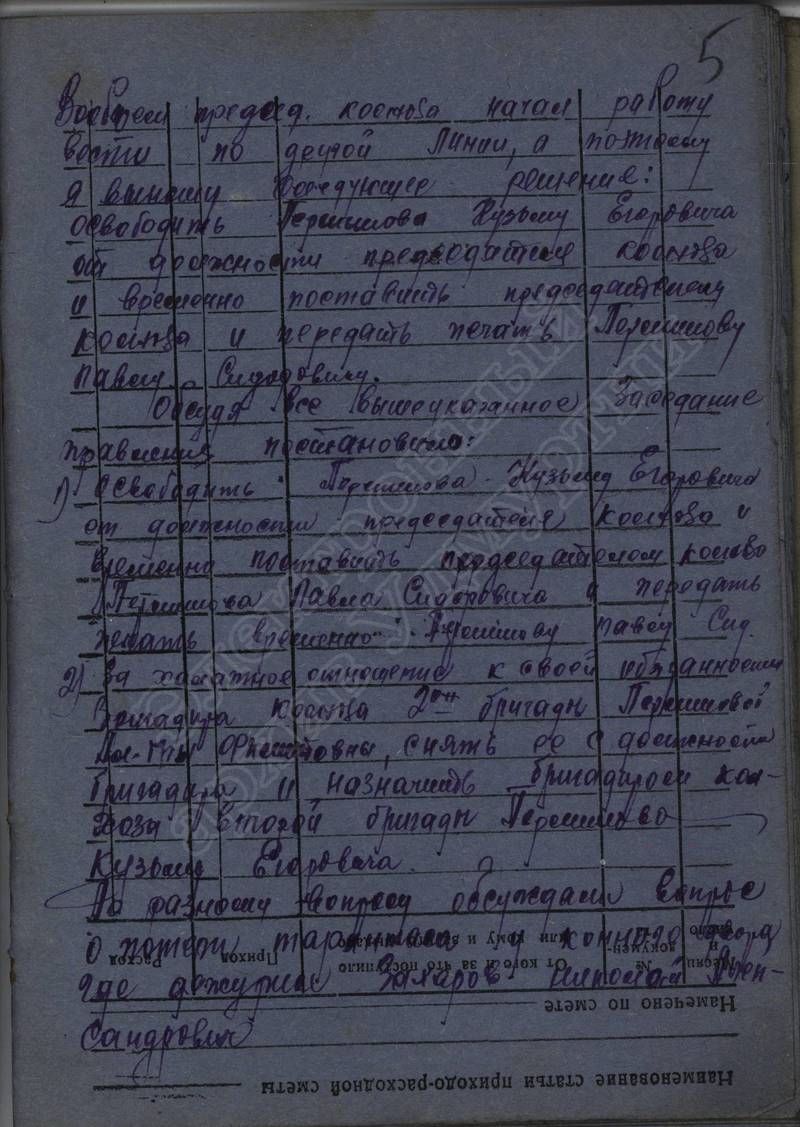 5
Вообщем председ. колхоза начал работу
вести по другой линии, а поэтому
я выношу следующее решение:
освободить Перешилова Кузьму Егоровича
от должности председателя колхоза
и временно поставить председателему
колхоза и передать печать Перешилову
Павлу Сидоровичу.
Обсудя все вышеуказанное Заседание
правления постановило:
1) Освободить Перешилова Кузьму Егоровича
от должности председателя колхоза и
временно поставить председателем колхоза
Перешилова Павла Сидоровича и передать
печать временно Перешилову Павлу Сид.
2) За халатное отношение к своей обязанности
бригадира колхоза 2ой бригады Перешиловой
снять ее с должности
бригадира и назначить бригадиром кол-
хоза второй бригады Перешилова
Кузьму Егоровича.
По разному вопросу обсуждали вопрос
о потери тарантаса и конного двора
где дежурил Захаров Николай Алек-
сандрович
Месяц и число
№ докумен-
От кого и за что поступило или кому и
Приход
Расход
Намечено по смете
Наименование статьи приходо-расходной сметы